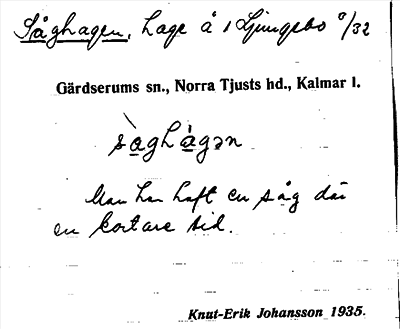 Såghagen, hage å 1 Ljungsbo 9/32
Gärdserums sn., Norra Tjusts hd., Kalmar l.
sàghágən
Man har haft en såg där
en kortare tid.
Knut-Erik Johansson 1935.